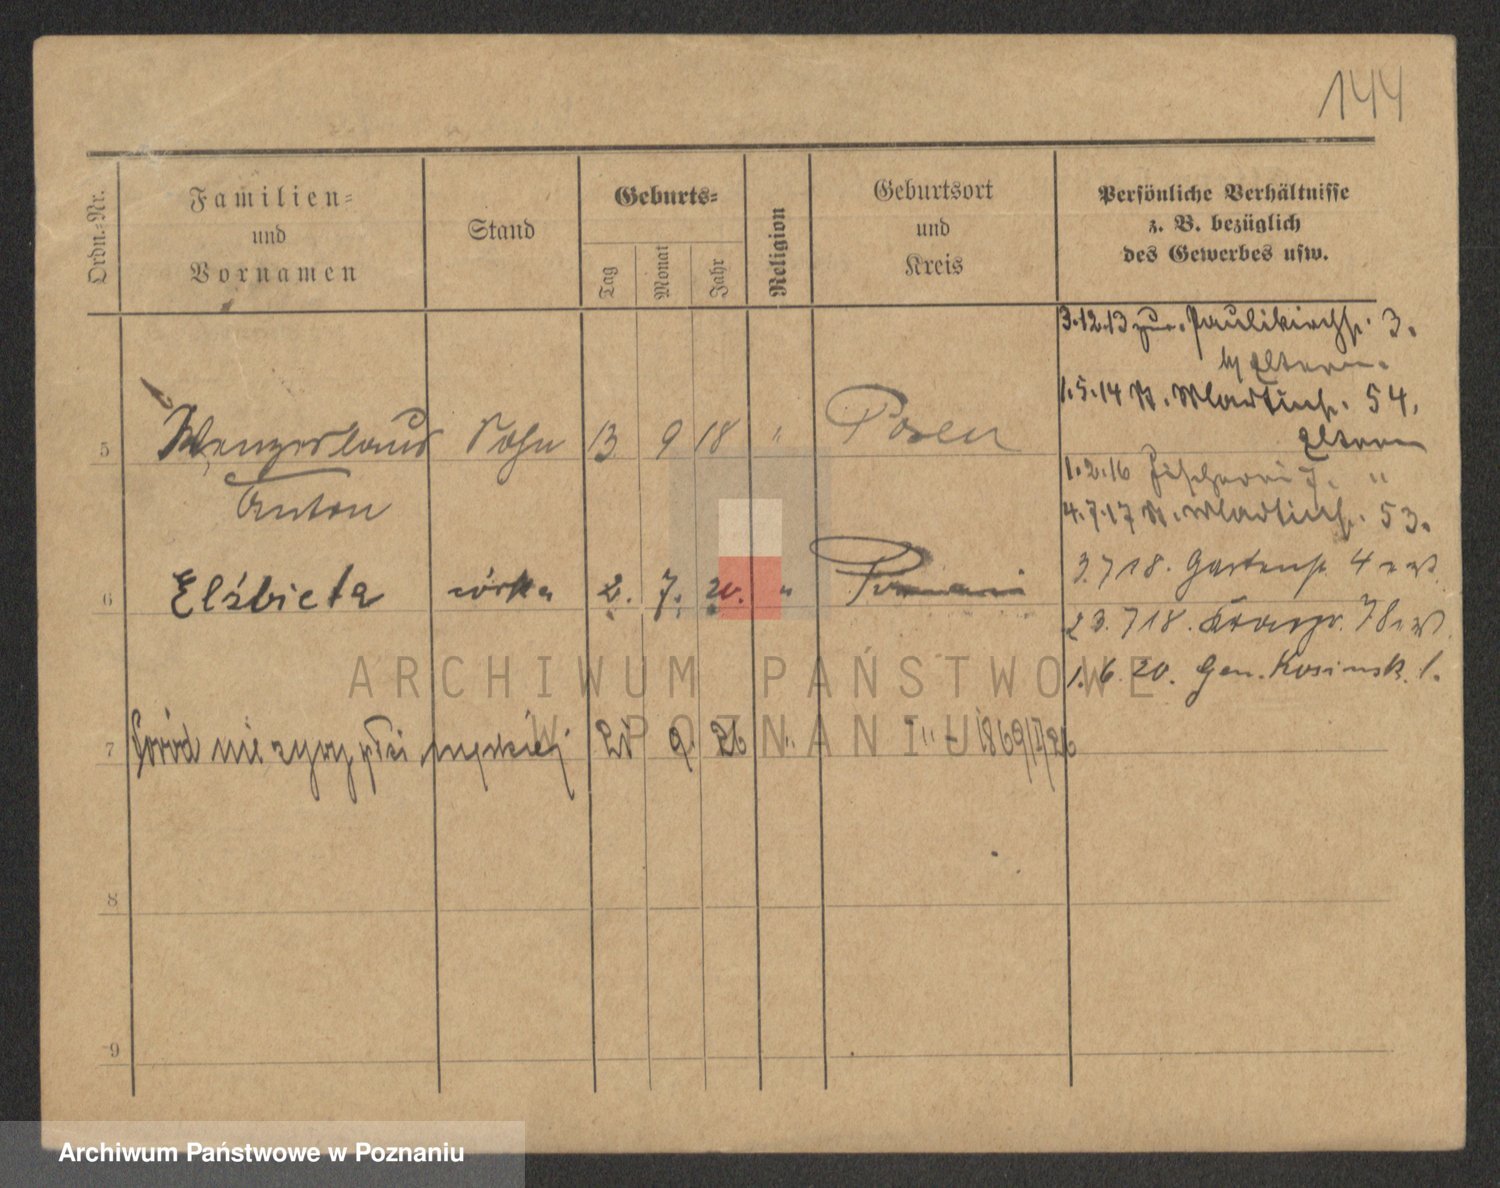 144
Ordn.-Nr.
Familien-
und
Vornamen
Stand
Geburts-
Tag
Monat
Jahr
Religion
Geburtsort
und
Kreis
Persönliche Verhältnisse
z. B. bezüglich
des Gewerbes usw.
3.12.13 zur. Paulikirchstr. 3.
b/ Eltern.
1.5.14 St. Martinstr. 54,
Eltern
5 Sohn 13 9 18 " Posen
Anton
1.2.16 Fischerei 7. "
4.7.17 St. Martinstr. 53.
3.7 18. Gartenstr. 4
6 Elżbieta córka 2. 7. 20. "
23.7 18. 78
1.6.20. Gen. Kosinsk. 1.
7 Poród nieżywy płci męskiej 21 9 26 " " - 1869/I/26
8
9
ARCHIWUM PAŃSTWOWE
W POZNANIU
Archiwum Państwowe w Poznaniu